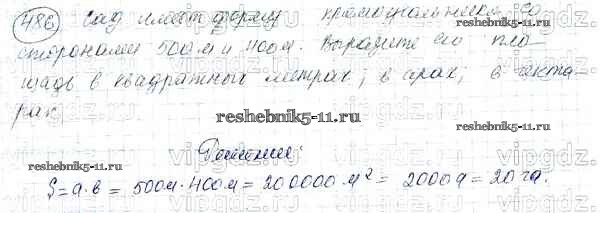 486 Сад имеет форму прямоугольника со
сторонами 500 м и 400 м. Выразите его пло-
щадь в квадратных метрах; в арах; в гекта-
рах.
reshebnik5-11.ru
reshebnik5-11.ru
vipgdz.ru
Решение:
S = a·b = 500м·400м = 200000 м² = 2000 а = 20 га.